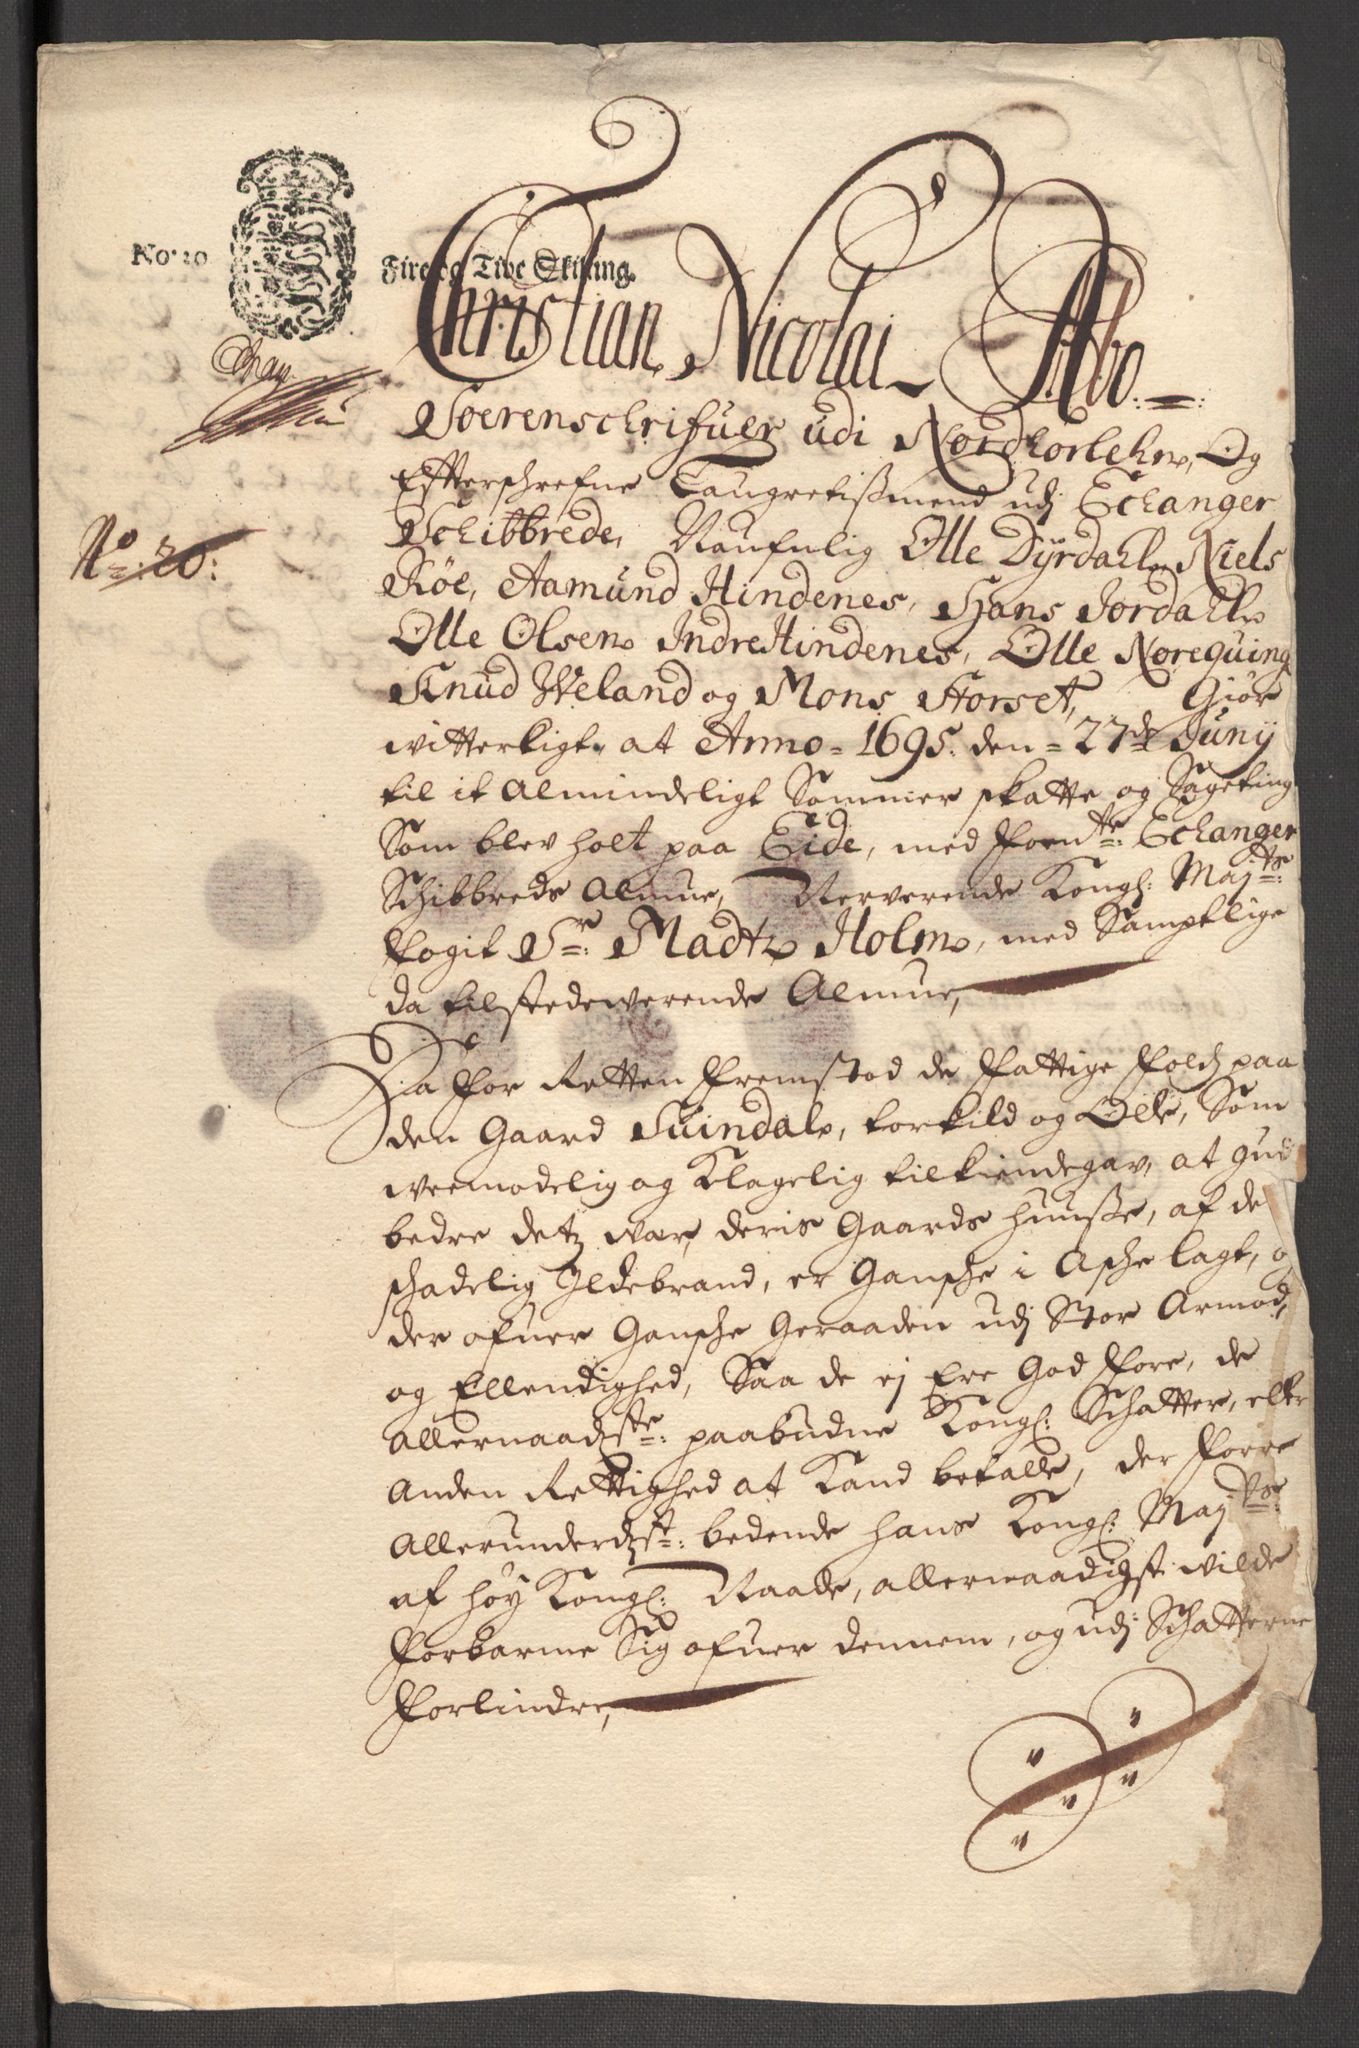 No. 20
Fire og Tive Skilling
Christian Nicolai Abo
No: 20:
Soerenschrifuer udi Nordhorlehn, Og
Effterschrefne Laugretismend udj Echanger
Schibbrede, Naufnlig Olle Dÿrdahl, Niels
Röe, Aamund Hindenes, Hans Jordahl
Olle Olsen IndreHindenes, Olle Norequing
Knud Weland og Mons Storset, Giör
witterligt at Anno 1695. den 27de Junÿ
til it Almindeligt Sommer skatte og Sageting
Som blev holt paa Eide, med forn:te Echanger
Schibbreds Almue, Nerverende Kongl: Maj:ts
Fogit Sr: Madtz Holm, med Samptlige
da tilstedewerende Almue,
Da for Retten fremstod de fattige folch paa
den Gaard Suindal, torkild og Olle, Som
weemodelig og Klagelig tilkiendegav, at gud
bedre detz war, deris Gaards huusse, af de
schadelig Ildebrand, er Gansche i Asche lagt, o
der ofuer Gansche Geraaden udj Stor Armod,
og Ellendighed, Saa de ej Ere God fore, de
Allernaadste: paabudne Kongl: Schatter, eller
Anden Rettighed at Kand betalle, der forre
Allerunderdst: bedende hans Kongl: Maj:ts
af höy Kongl: Naade, allernaadigst wilde
forbarme Sig ofuer dennem, og udj Schatterne
forlindre,